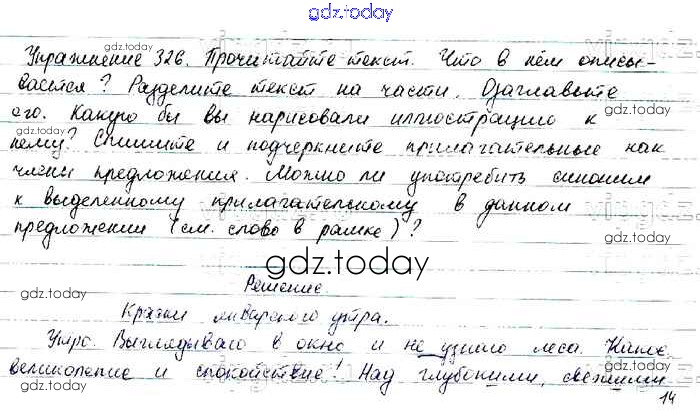 gdz.today
Упражнение 326. Прочитайте текст. Что в нём описы-
вается? Разделите текст на части. Озаглавьте
его. Какую бы вы нарисовали иллюстрацию к
нему? Спишите и подчеркните прилагательные как
члены предложения. Можно ли употребить синоним
к выделенному прилагательному в данном
предложении (см. слово в рамке)?
gdz.today
Решение.
Краски январского утра.
Утро. Выглядываю в окно и не узнаю леса. Какое
великолепие и спокойствие! Над глубокими, свежими
14